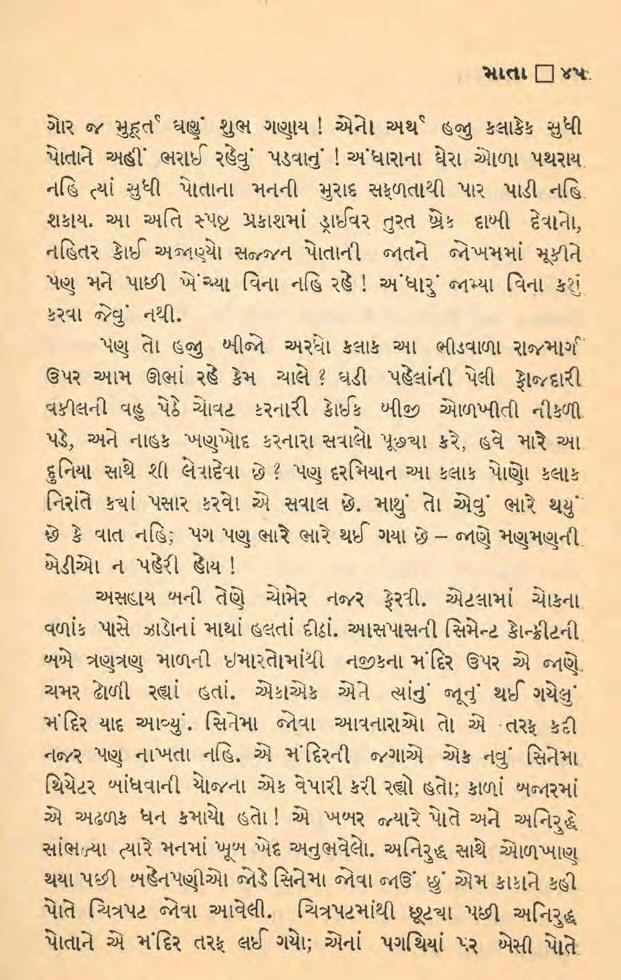 માતા □ ૪૫
ગોર જ મુહૂર્ત ઘણું શુભ ગણાય ! એનો અર્થ હજી કલાકેક સુધી
પોતાને અહીં ભરાઈ રહેવું પડવાનું ! અંધારાના ઘેરા ઓળા પથરાય
નહિ ત્યાં સુધી પોતાના મનની મુરાદ સફળતાથી પાર પાડી નહિ
શકાય. આ અતિ સ્પષ્ટ પ્રકાશમાં ડ્રાઈવર તુરત બ્રેક દાબી દેવાનો,
નહિતર કોઈ અજાણ્યો સજ્જન પોતાની જાતને જોખમમાં મૂકીને
પણ મને પાછી ખેંચ્યા વિના નહિ રહે ! અંધારું જામ્યા વિના કશું
કરવા જેવું નથી.
પણ તો હજી બીજો અરધો કલાક આ ભીડવાળા રાજમાર્ગ
ઉપર આમ ઊભાં રહે કેમ ચાલે ? ઘડી પહેલાંની પેલી ફોજદારી
વકીલની વહુ પેઠે ચોવટ કરનારી કોઈક બીજી ઓળખીતી નીકળી
પડે, અને નાહક ખણખોદ કરનારા સવાલો પૂછ્યા કરે, હવે મારે આ
દુનિયા સાથે શી લેવાદેવા છે ? પણ દરમિયાન આ કલાક પોણો કલાક
નિરાંતે ક્યાં પસાર કરવો એ સવાલ છે. માથું તો એવું ભારે થયું
છે કે વાત નહિ; પગ પણ ભારે ભારે થઈ ગયા છે – જાણે મણમણની
બેડીઓ ન પહેરી હોય !
અસહાય બની તેણે ચોમેર નજર ફેરવી. એટલામાં ચોકના
વળાંક પાસે ઝાડોનાં માથાં હલતાં દીઠાં. આસપાસની સિમેન્ટ કોન્ક્રીટની
બબે ત્રણત્રણ માળની ઇમારતોમાંથી નજીકના મંદિર ઉપર એ જાણે
ચમર ઢોળી રહ્યાં હતાં. એકાએક એને ત્યાંનું જૂનું થઈ ગયેલું
મંદિર યાદ આવ્યું. સિનેમા જોવા આવનારાઓ તો એ તરફ કદી
નજર પણ નાખતા નહિ. એ મંદિરની જગાએ એક નવું સિનેમા
થિયેટર બાંધવાની યોજના એક વેપારી કરી રહ્યો હતો; કાળાં બજારમાં
એ અઢળક ધન કમાયો હતો ! એ ખબર જ્યારે પોતે અને અનિરુદ્ધે
સાંભળ્યા ત્યારે મનમાં ખૂબ ખેદ અનુભવેલો. અનિરુદ્ધ સાથે ઓળખાણ
થયા પછી બહેનપણીઓ જોડે સિનેમા જોવા જાઉં છું એમ કાકાને કહી
પોતે ચિત્રપટ જોવા આવેલી. ચિત્રપટમાંથી છૂટ્યા પછી અનિરુદ્ધ
પોતાને એ મંદિર તરફ લઈ ગયો; એનાં પગથિયાં પર બેસી પોતે